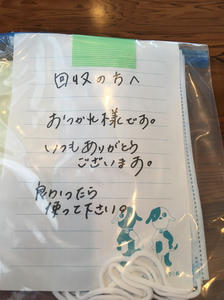 回収の方へ
おつかれ様です。
いつもありがとう
ございます。
良かったら
使って下さい。